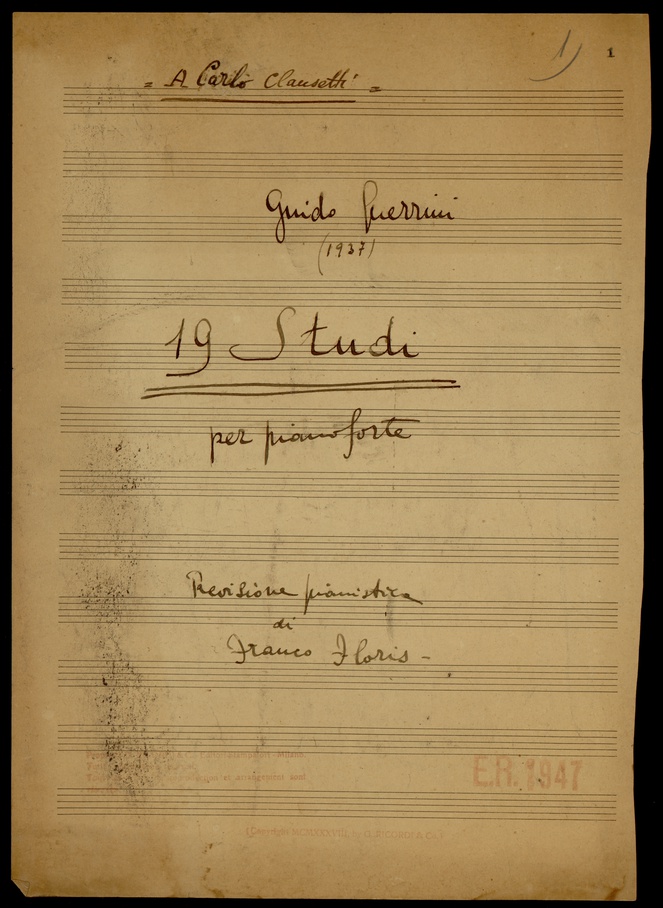 1) 1
= A Carlo Clausetti =
Guido Guerrini
(1937)
19 Studi
per pianoforte
Revisione pianistica
di
Franco Floris -
E.R. 1947
Copyright MCMXXXVIII, by G. RICORDI & Co.